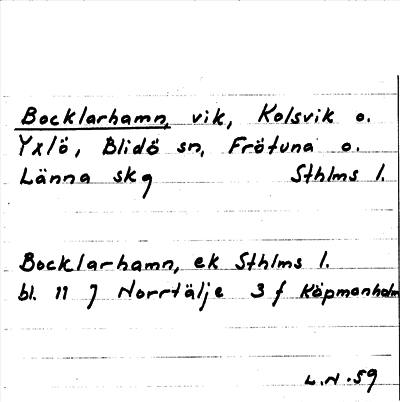 Bocklarhamn, vik, Kolsvik o.
Yxlö, Blidö sn, Frötuna o.
Länna skg Sthlms l.
Bocklarhamn, ek Sthlms l.
bl. 11 J Norrtälje 3 f Köpmanholm
L.N.59